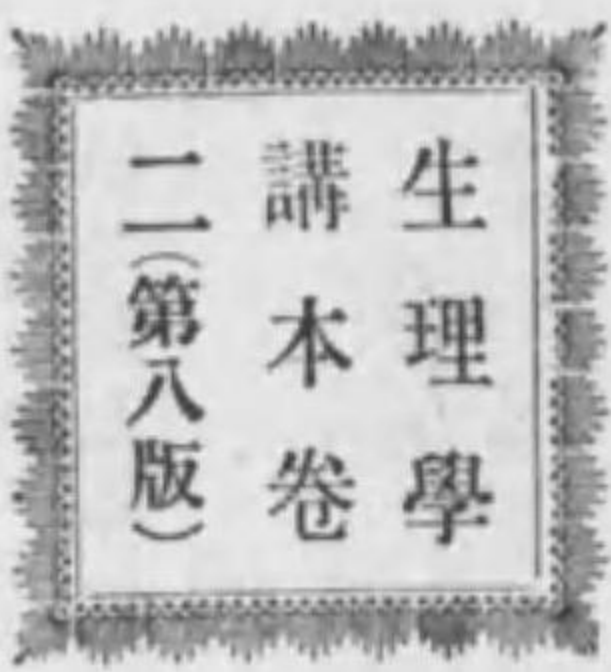 生理學
講本卷
二（第八版）